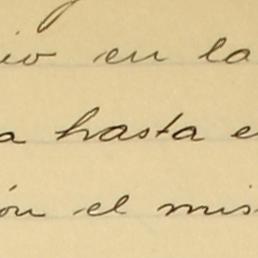 io en la
a hasta e
ón el mis